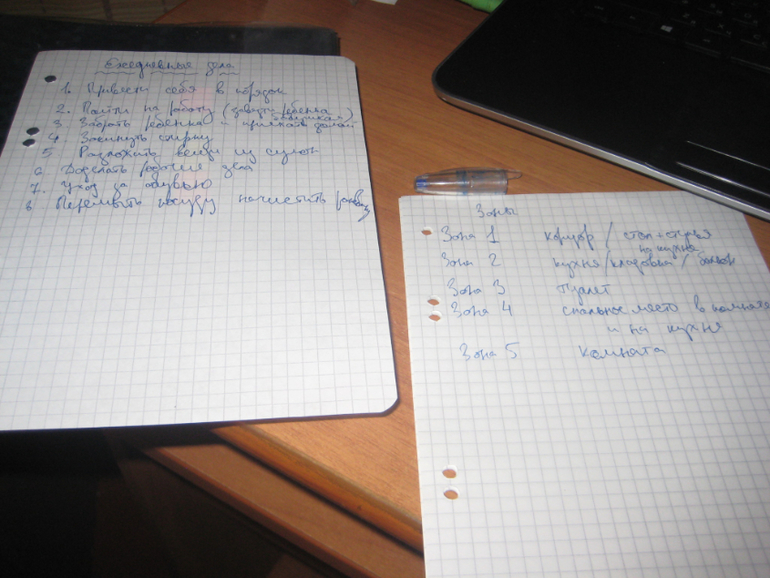 Ежедневные дела
1. Привести себя в порядок
2. Пойти на работу (завезти ребенка
3. Забрать ребенка и приехать домой
4 Закинуть стирку
5 Разложить вещи из сумок
6 Доделать рабочие дела
7. Уход за обувью
8 Перемыть посуду начистить
Зоны
Зона 1 коридор / стол+стулья
на кухне
Зона 2 кухня/кладовка/ балкон
Зона 3 туалет
Зона 4 спальное место в комнате
и на кухне
Зона 5 комната